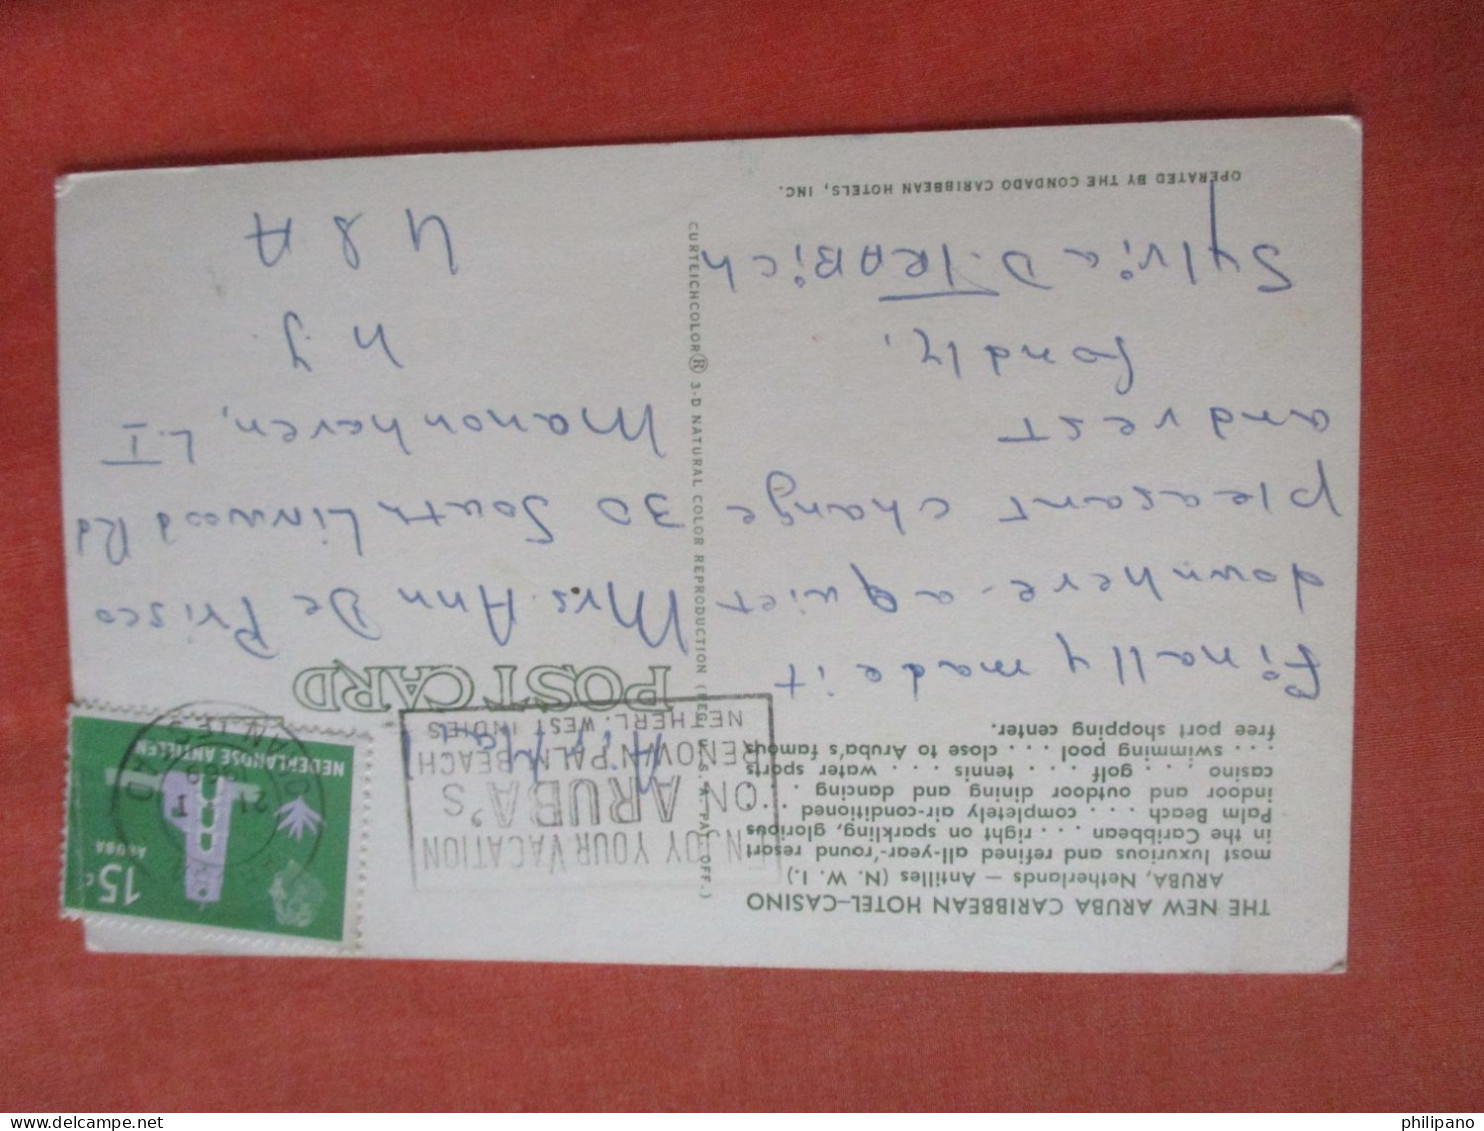 THE NEW ARUBA CARIBBEAN HOTEL–CASINO
ARUBA, Netherlands – Antilles (N. W. I.)
most luxurious and refined all-year-'round resort
in the Caribbean . . . right on sparkling, glorious
Palm Beach . . . completely air-conditioned . . .
indoor and outdoor dining and dancing . . .
casino . . . golf . . . tennis . . . water sports
. . . swimming pool . . . close to Aruba's famous
free port shopping center.
Finally made it
down here - a quiet
pleasant change
and rest
fondly,
Sylvia D. TRABich
OPERATED BY THE CONDADO CARIBBEAN HOTELS, INC.
CURTEICHCOLOR® 3-D NATURAL COLOR REPRODUCTION (REG. U. S. A. PAT. OFF.)
ENJOY YOUR VACATION
ON ARUBA'S
RENOWN PALM BEACH
NETHERL. WEST INDIES
Air Mail
15 c
ARUBA
NEDERLANDSE ANTILLEN
21
1969
POST CARD
Mrs. Ann De Prisco
30 South Linwood Rd
Manonheven, L.I
n.y.
USA
philipano